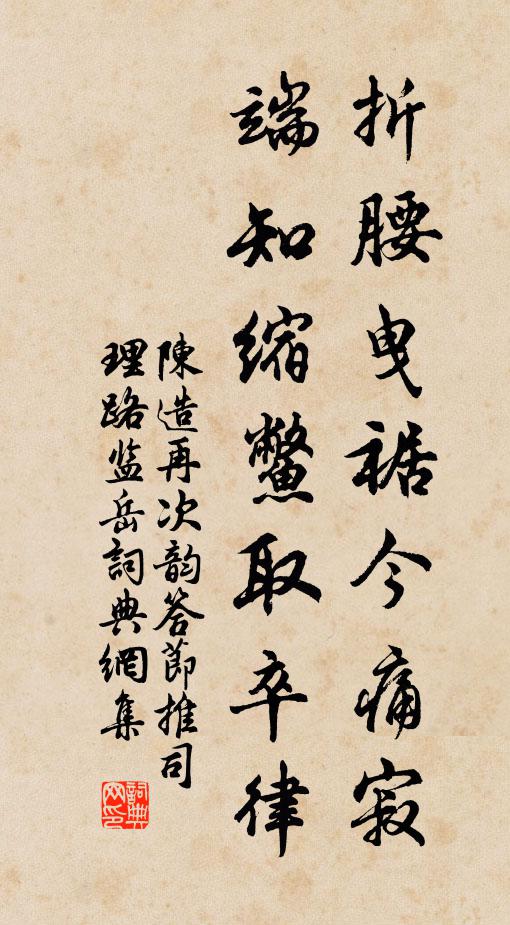 折腰曳裾今痛寂
端知缩鳖取卒律
陳造再次韵答節推司
理路监岳詞典網集
詞典网印